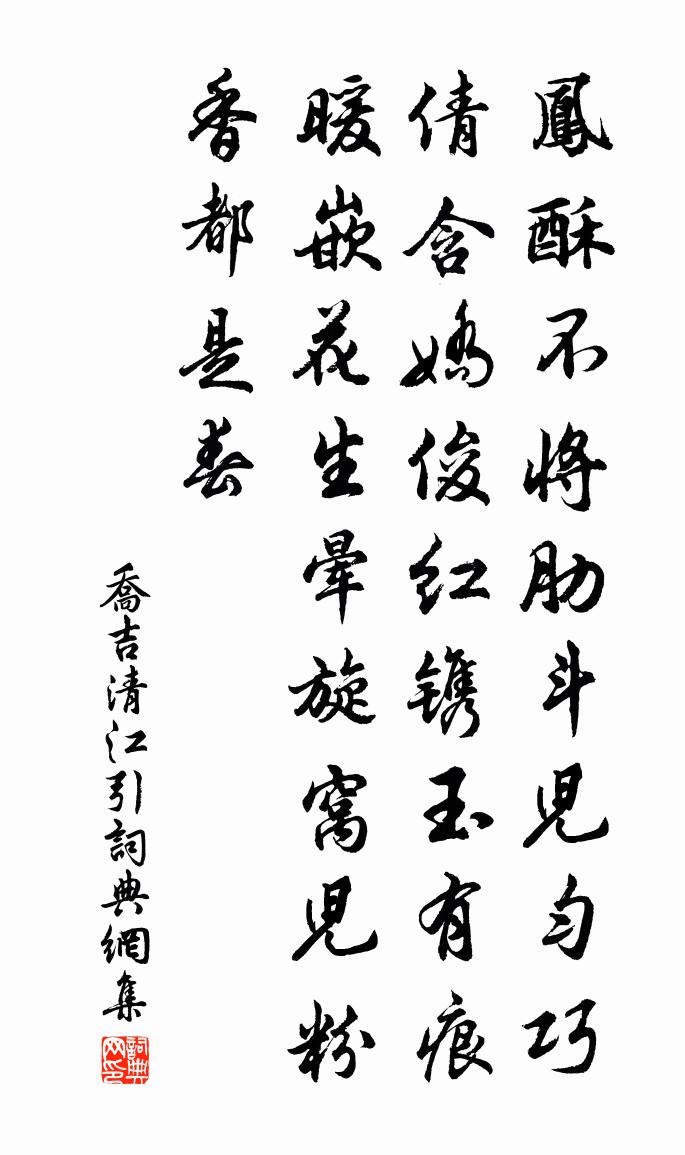 鳳酥不將肋斗兒勻巧
倩含嬌俊红镌玉有痕
暖嵌花生暈旋窩兒粉
香都是春
喬吉清江引詞典網集
詞典网印